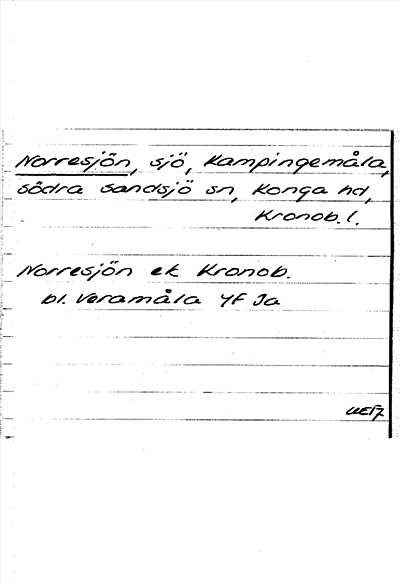 Norresjön, sjö, Kampingemåla,
södra Sandsjö sn, Konga hd,
Kronob. l.
Norresjön ek Kronob.
bl. Veramåla 4F Ja